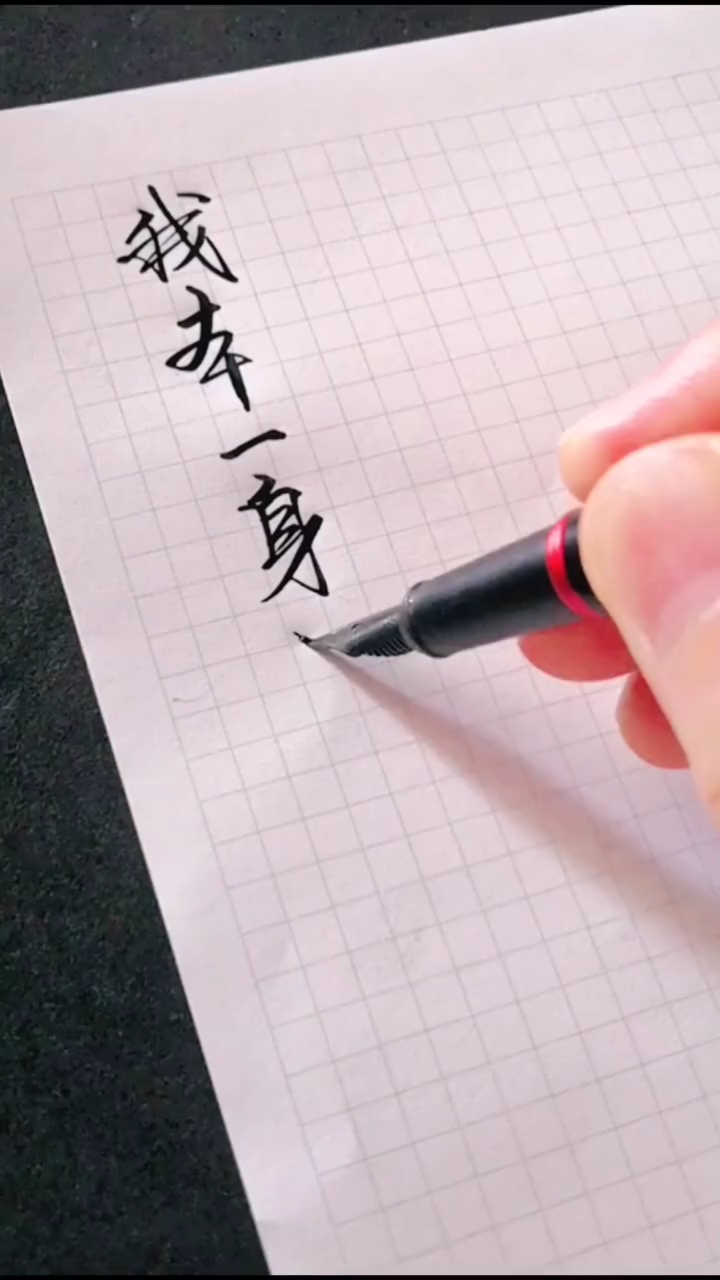 我本一身